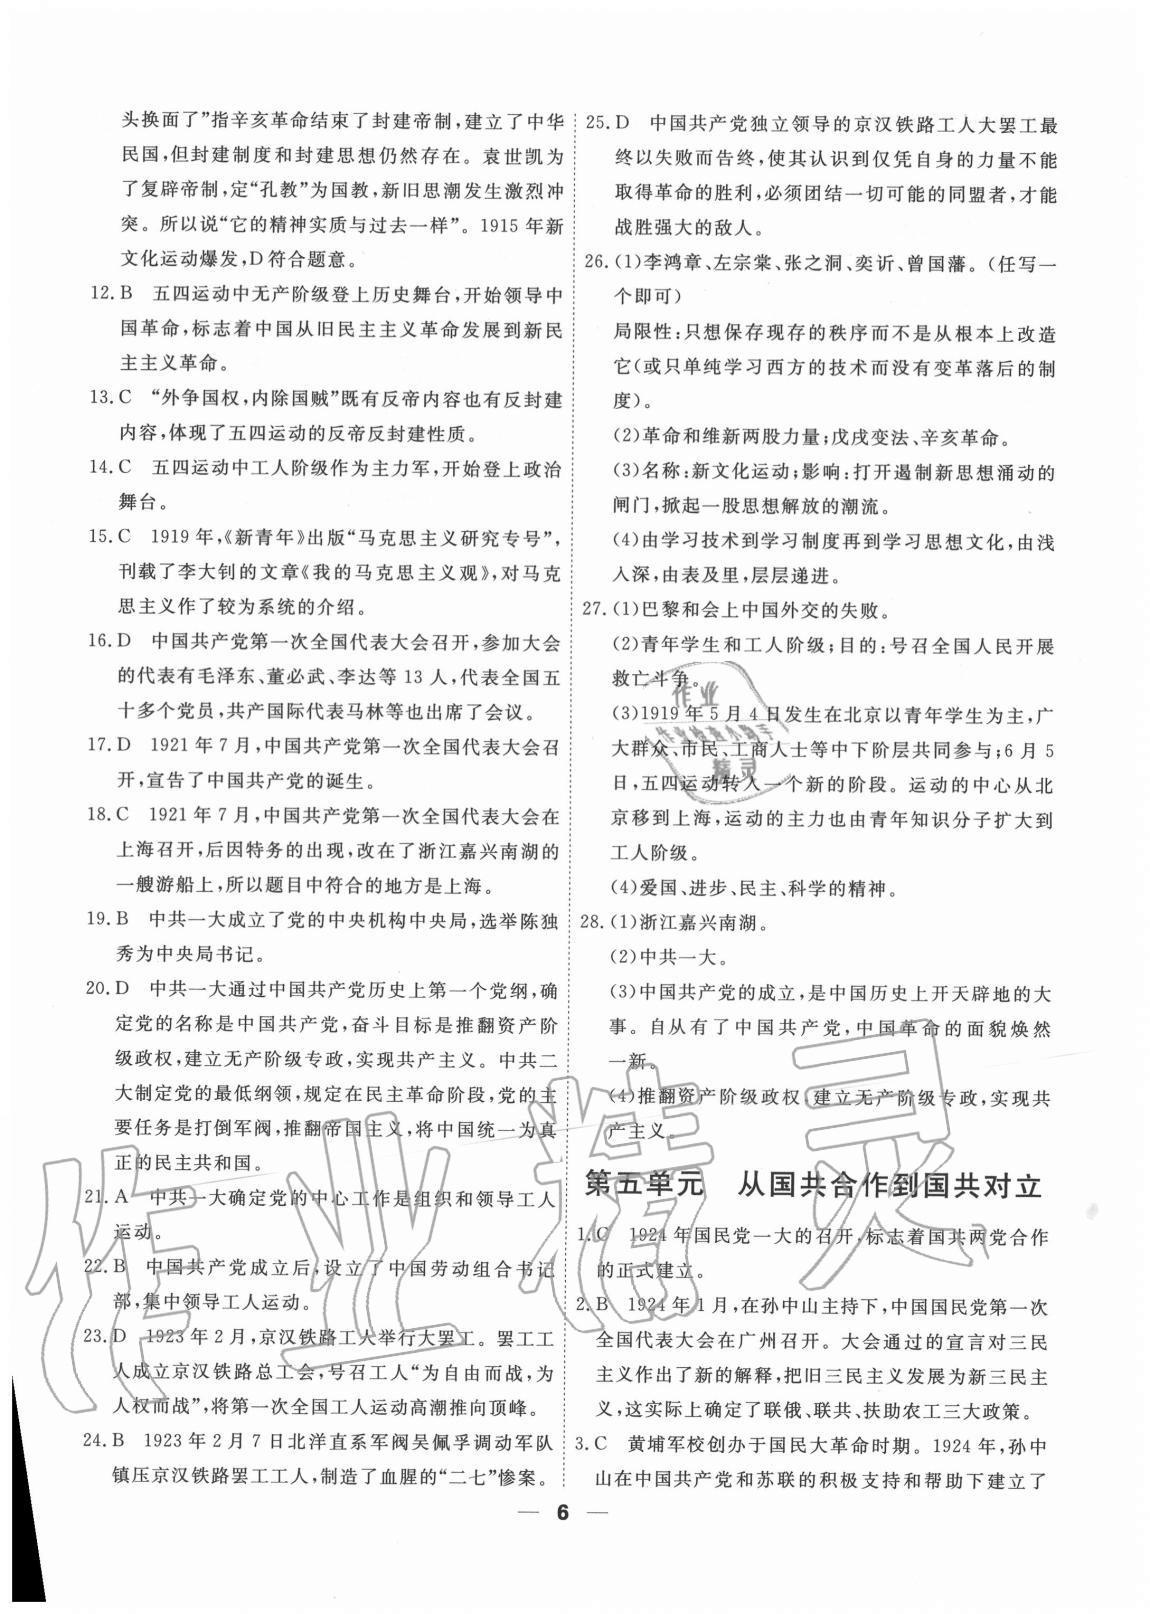 头换面了”指辛亥革命结束了封建帝制,建立了中华
民国,但封建制度和封建思想仍然存在。袁世凯为
了复辟帝制,定“孔教”为国教,新旧思潮发生激烈冲
突。所以说“它的精神实质与过去一样”。1915 年新
文化运动爆发,D符合题意。
12.B 五四运动中无产阶级登上历史舞台,开始领导中
国革命,标志着中国从旧民主主义革命发展到新民
主主义革命。
13.C “外争国权,内除国贼”既有反帝内容也有反封建
内容,体现了五四运动的反帝反封建性质。
14.C 五四运动中工人阶级作为主力军,开始登上政治
舞台。
15.C 1919 年,《新青年》出版“马克思主义研究专号”,
刊载了李大钊的文章《我的马克思主义观》,对马克
思主义作了较为系统的介绍。
16.D 中国共产党第一次全国代表大会召开,参加大会
的代表有毛泽东、董必武、李达等 13 人,代表全国五
十多个党员,共产国际代表马林等也出席了会议。
17.D 1921 年 7 月,中国共产党第一次全国代表大会召
开,宣告了中国共产党的诞生。
18.C 1921 年 7 月,中国共产党第一次全国代表大会在
上海召开,后因特务的出现,改在了浙江嘉兴南湖的
一艘游船上,所以题目中符合的地方是上海。
19.B 中共一大成立了党的中央机构中央局,选举陈独
秀为中央局书记。
20.D 中共一大通过中国共产党历史上第一个党纲,确
定党的名称是中国共产党,奋斗目标是推翻资产阶
级政权,建立无产阶级专政,实现共产主义。中共二
大制定党的最低纲领,规定在民主革命阶段,党的主
要任务是打倒军阀,推翻帝国主义,将中国统一为真
正的民主共和国。
21.A 中共一大确定党的中心工作是组织和领导工人
运动。
22.B 中国共产党成立后,设立了中国劳动组合书记
部,集中领导工人运动。
23.D 1923 年 2 月,京汉铁路工人举行大罢工。罢工工
人成立京汉铁路总工会,号召工人“为自由而战,为
人权而战”,将第一次全国工人运动高潮推向顶峰。
24.B 1923 年 2 月 7 日北洋直系军阀吴佩孚调动军队
镇压京汉铁路罢工工人,制造了血腥的“二七”惨案。
25.D 中国共产党独立领导的京汉铁路工人大罢工最
终以失败而告终,使其认识到仅凭自身的力量不能
取得革命的胜利,必须团结一切可能的同盟者,才能
战胜强大的敌人。
26.(1)李鸿章、左宗棠、张之洞、奕䜣、曾国藩。(任写一
个即可)
局限性:只想保存现存的秩序而不是从根本上改造
它(或只单纯学习西方的技术而没有变革落后的制
度)。
(2)革命和维新两股力量;戊戌变法、辛亥革命。
(3)名称:新文化运动;影响:打开遏制新思想涌动的
闸门,掀起一股思想解放的潮流。
(4)由学习技术到学习制度再到学习思想文化,由浅
入深,由表及里,层层递进。
27.(1)巴黎和会上中国外交的失败。
(2)青年学生和工人阶级;目的:号召全国人民开展
救亡斗争。
(3)1919 年 5 月 4 日发生在北京以青年学生为主,广
大群众、市民、工商人士等中下阶层共同参与;6 月 5
日,五四运动转入一个新的阶段。运动的中心从北
京移到上海,运动的主力也由青年知识分子扩大到
工人阶级。
(4)爱国、进步、民主、科学的精神。
28.(1)浙江嘉兴南湖。
(2)中共一大。
(3)中国共产党的成立,是中国历史上开天辟地的大
事。自从有了中国共产党,中国革命的面貌焕然
一新。
(4)推翻资产阶级政权,建立无产阶级专政,实现共
产主义。
第五单元 从国共合作到国共对立
1.C 1924 年国民党一大的召开,标志着国共两党合作
的正式建立。
2.B 1924 年 1 月,在孙中山主持下,中国国民党第一次
全国代表大会在广州召开。大会通过的宣言对三民
主义作出了新的解释,把旧三民主义发展为新三民主
义,这实际上确定了联俄、联共、扶助农工三大政策。
3.C 黄埔军校创办于国民大革命时期。1924 年,孙中
山在中国共产党和苏联的积极支持和帮助下建立了
— 6 —
作业精灵
作业
作业检查小助手
精灵